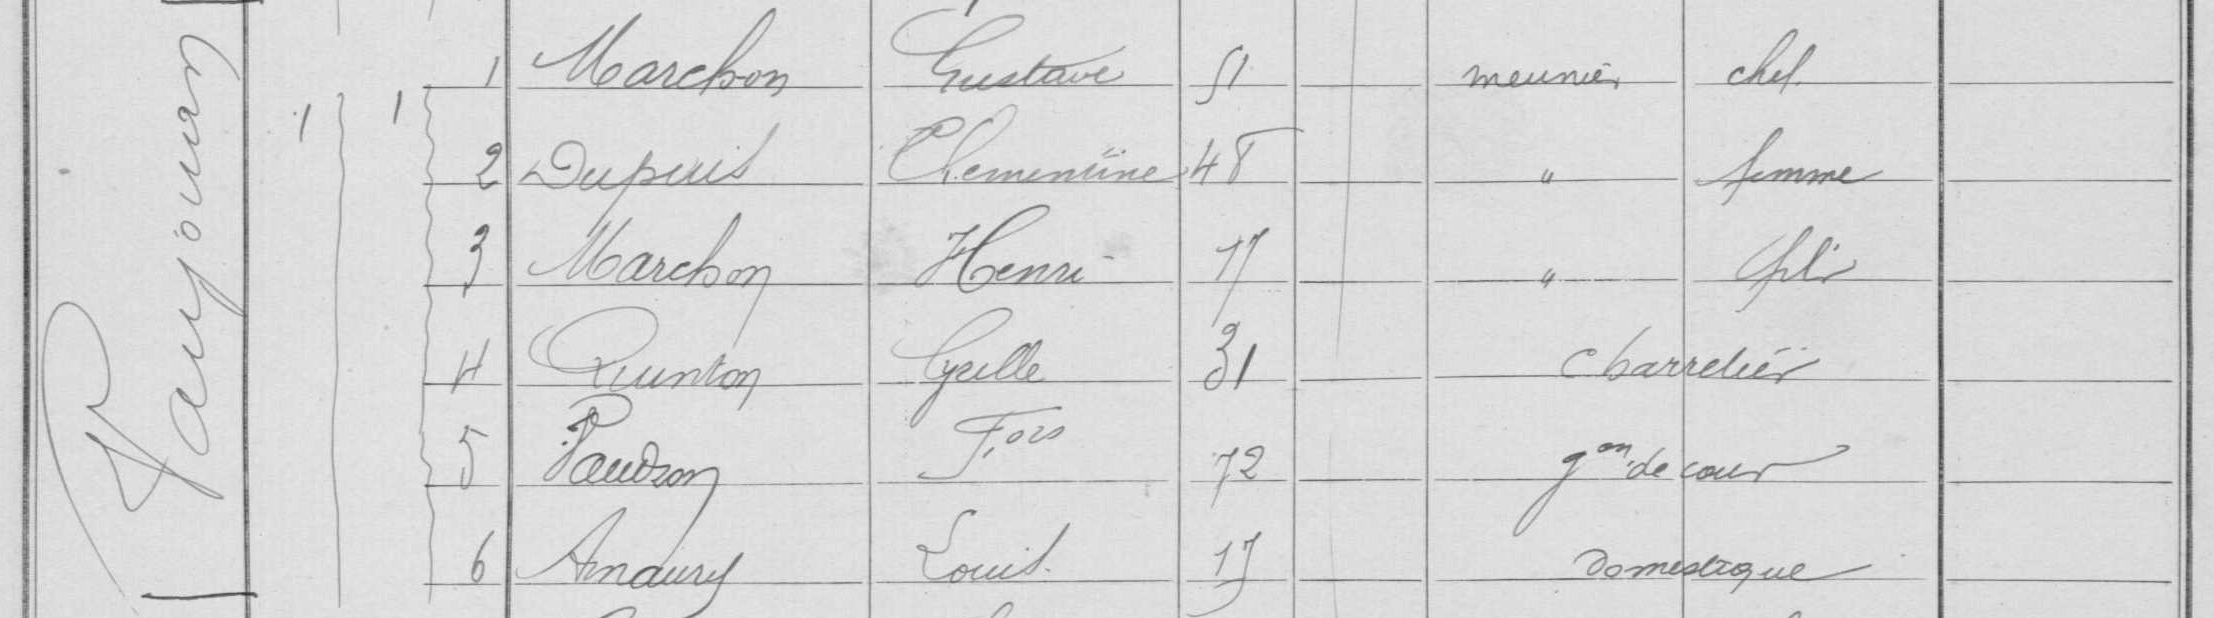 Paujouan
1 1
1 Marchon Gustave 51 meunier chef
2 Dupuis Clementine 48 " femme
3 Marchon Henri 17 " fils
4 Quinton Cyrille 31 charretier
5 F.ois 72 g.on de cour
6 Amaury Louis 17 domestique